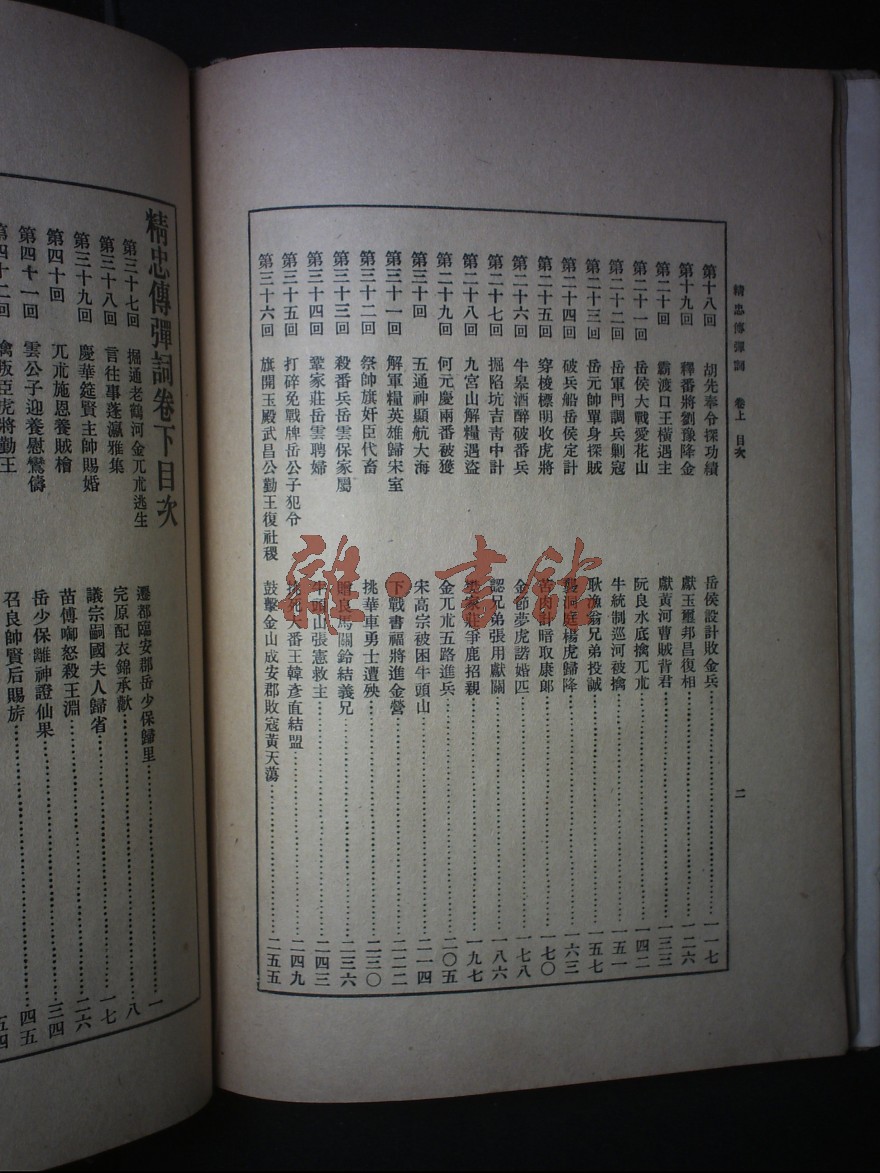 精忠傳彈詞 卷上 目次 二
第十八回 胡先奉令探功績 岳侯設計敗金兵 一一七
第十九回 釋番將劉豫降金 獻玉璽邦昌復相 一二六
第二十回 霸渡口王橫遇主 獻黃河曹賊背君 一三三
第二十一回 岳侯大戰愛花山 阮良水底擒兀朮 一四二
第二十二回 岳軍門調兵剿寇 牛統制巡河被擒 一五一
第二十三回 岳元帥單身探賊 耿漁翁兄弟投誠 一五七
第二十四回 破兵船岳侯定計 襲洞庭楊虎歸降 一六三
第二十五回 穿梭標明收虎將 苦肉計暗取康郎 一七〇
第二十六回 牛皋酒醉破番兵 金節夢虎諾婚匹 一七八
第二十七回 掘陷坑吉靑中計 認兄弟張用獻關 一八六
第二十八回 九宮山解糧遇盜 樊家莊爭鹿招親 一九七
第二十九回 何元慶兩番被獲 金兀朮五路進兵 二〇五
第三十回 五通神顯航大海 宋高宗被困牛頭山 二一四
第三十一回 解軍糧英雄歸宋室 下戰書福將進金營 二二二
第三十二回 祭帥旗奸臣代畜 挑華車勇士遭殃 二三〇
第三十三回 殺番兵岳雲保家屬 贈良馬關鈴結義兄 二三六
第三十四回 鞏家莊岳雲聘婦 牛頭山張憲救主 二四三
第三十五回 打碎免戰牌岳公子犯令 挑死大番王韓彥直結盟 二四九
第三十六回 旗開玉殿武昌公勤王復社稷 鼓擊金山成安郡敗寇黃天蕩 二五五
精忠傳彈詞卷下目次
第三十七回 掘通老鸛河金兀朮逃生 遷都臨安郡岳少保歸里 一
第三十八回 言往事蓬瀛雅集 完原配衣錦承歡 八
第三十九回 慶華筵賢主帥賜婚 議宗嗣國夫人歸省 一七
第四十回 兀朮施恩養賊檜 苗傅啣怒殺王淵 二六
第四十一回 雲公子迎養慰鸞儔 岳少保離神證仙果 三四
第四十二回 擒叛臣虎將勤王 召良帥賢后賜旂 四五
五四
雜·書館